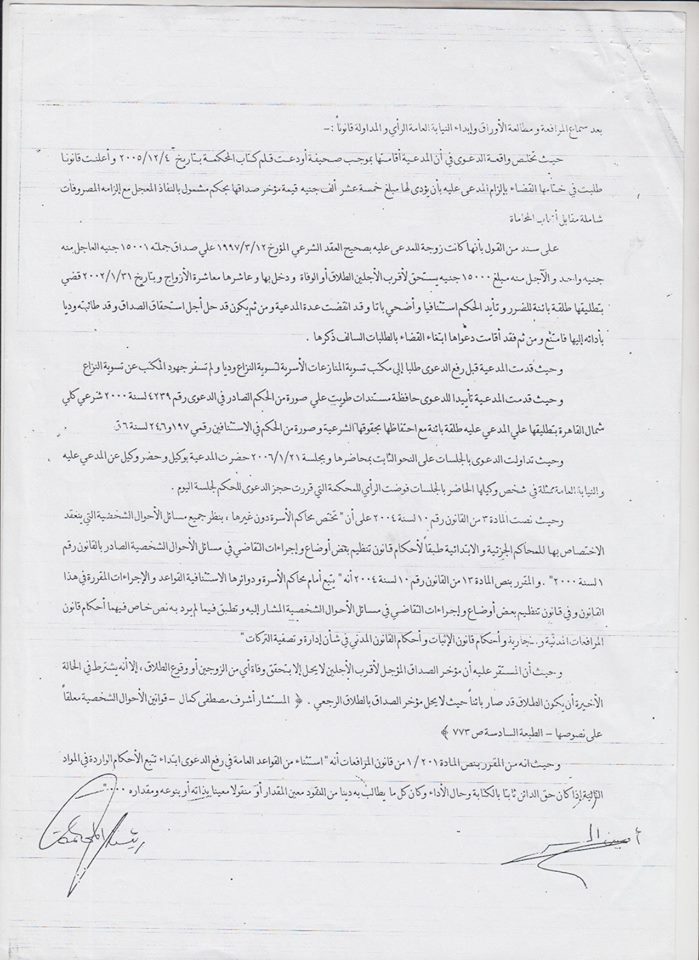 بعد سماع المرافعة و مطالعة الأوراق وإبداء النيابة العامة الرأي و المداولة قانوناً :-
حيث تخلص واقعة الدعوى في أن المدعية أقامتها بموجب صحيفة أودعت قلم كتاب المحكمة بتاريخ ٢٠٠٥/١٢/٤ و أعلنت قانونا
طلبت في ختامها القضاء بإلزام المدعى عليه بأن يؤدى لها مبلغ خمسة عشر ألف جنيه قيمة مؤخر صداقها بحكم مشمول بالنفاذ المعجل مع إلزامه المصروفات
شاملة مقابل أتعاب المحاماة
على سند من القول بأنها كانت زوجة للمدعى عليه بصحيح العقد الشرعي المؤرخ ١٩٩٧/٣/١٢ علي صداق جملته ١٥٠٠١ جنيه العاجل منه
جنيه واحد و الآجل منه مبلغ ١٥٠٠٠ جنيه يستحق لأقرب الأجلين الطلاق أو الوفاة و دخل بها و عاشرها معاشرة الأزواج و بتاريخ ٢٠٠٢/١/٣١ قضي
بتطليقها طلقة بائنة للضرر و تأيد الحكم استئنافيا و أضحي باتا و قد انقضت عدة المدعية و من ثم يكون قد حل أجل استحقاق الصداق و قد طالبته وديا
بأدائه إليها فامتنع و من ثم فقد أقامت دعواها ابتغاء القضاء بالطلبات السالف ذكرها .
و حيث قدمت المدعية قبل رفع الدعوى طلبا إلى مكتب تسوية المنازعات الأسرية لتسوية النزاع وديا و لم تسفر جهود المكتب عن تسوية النزاع
و حيث قدمت المدعية تأييدا للدعوى حافظة مستندات طويت علي صورة من الحكم الصادر في الدعوى رقم ٤٢٣٩ لسنة ٢٠٠٠ شرعي كلي
شمال القاهرة بتطليقها علي المدعي عليه طلقة بائنة مع احتفاظها بحقوقها الشرعية و صورة من الحكم في الاستئنافين رقمي ١٩٧ و ٢٤٦ لسنة ٦ ق
و حيث تداولت الدعوى بالجلسات على النحو الثابت بمحاضرها و بجلسة ٢٠٠٦/١/٢١ حضرت المدعية بوكيل و حضر وكيل عن المدعي عليه
و النيابة العامة ممثلة في شخص وكيلها الحاضر بالجلسات فوضت الرأي للمحكمة التي قررت حجز الدعوى للحكم لجلسة اليوم .
و حيث نصت المادة ٣ من القانون رقم ١٠ لسنة ٢٠٠٤ على أن "تختص محاكم الأسرة دون غيرها ، بنظر جميع مسائل الأحوال الشخصية التي ينعقد
الاختصاص بها للمحاكم الجزئية و الابتدائية طبقاً لأحكام قانون تنظيم بعض أوضاع و إجراءات التقاضي في مسائل الأحوال الشخصية الصادر بالقانون رقم
١ لسنة ٢٠٠٠" . و المقرر بنص المادة ١٣ من القانون رقم ١٠ لسنة ٢٠٠٤ أنه " يتبع أمام محاكم الأسرة و دوائرها الاستئنافية القواعد و الإجراءات المقررة في هذا
القانون و في قانون تنظيم بعض أوضاع و إجراءات التقاضي في مسائل الأحوال الشخصية المشار إليه و تطبق فيما لم يرد به نص خاص فيهما أحكام قانون
المرافعات المدنية و التجارية و أحكام قانون الإثبات و أحكام القانون المدني في شأن إدارة و تصفية التركات"
و حيث أن المستقر عليه أن مؤخر الصداق المؤجل لأقرب الأجلين لا يحل إلا بتحقق وفاة أي من الزوجين أو وقوع الطلاق ، إلا أنه يشترط في الحالة
الأخيرة أن يكون الطلاق قد صار بائناً حيث لا يحل مؤخر الصداق بالطلاق الرجعي . ﴿ المستشار أشرف مصطفى كمال – قوانين الأحوال الشخصية معلقاً
على نصوصها – الطبعة السادسة ص ٧٧٣ ﴾
و حيث انه من المقرر بنص المادة ١/٢٠١ من قانون المرافعات أنه "استثناء من القواعد العامة في رفع الدعوى ابتداء تتبع الأحكام الواردة في المواد
التالية إذا كان حق الدائن ثابتا بالكتابة و حال الأداء و كان كل ما يطالب به دينا من النقود معين المقدار أو منقولا معينا بذاته أو بنوعه و مقداره ...."
أمين السر
رئيس المحكمة